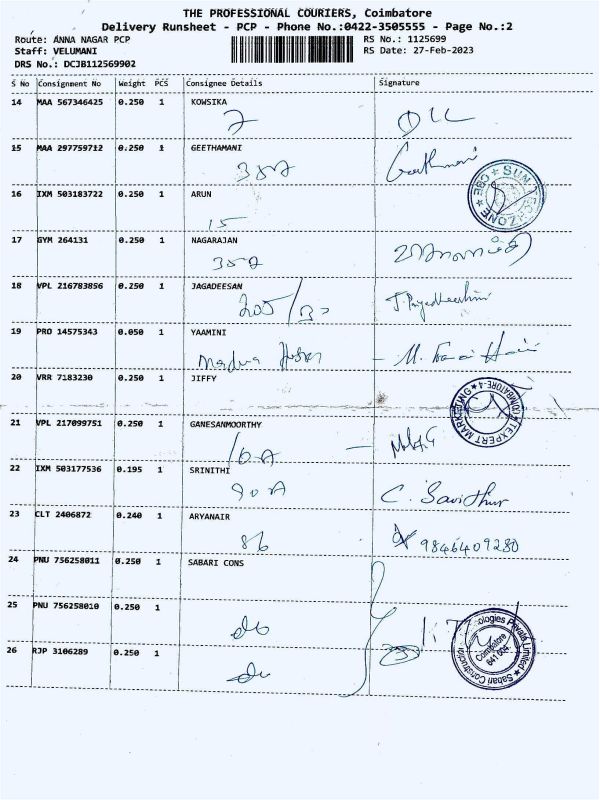 THE PROFESSIONAL COURIERS, Coimbatore
Delivery Runsheet - PCP - Phone No.:0422-3505555 - Page No.:2
Route: ANNA NAGAR PCP RS No.: 1125699
Staff: VELUMANI RS Date: 27-Feb-2023
DRS No.: DCJB112569902
S No Consignment No Weight PCS Consignee Details Signature
14 MAA 567346425 0.250 1 KOWSIKA
7
15 MAA 297759712 0.250 1 GEETHAMANI
Geethmani
16 IXM 503183722 0.250 1 ARUN
15
17 GYM 264131 0.250 1 NAGARAJAN
18 VPL 216783856 0.250 1 JAGADEESAN
205/
19 PRO 14575343 0.050 1 YAAMINI
20 VRR 7183230 0.250 1 JIFFY
21 VPL 217099751 0.250 1 GANESANMOORTHY
22 IXM 503177536 0.195 1 SRINITHI
23 CLT 2406872 0.240 1 ARYANAIR
86 9846409280
24 PNU 756258011 0.250 1 SABARI CONS
25 PNU 756258010 0.250 1
do
26 RJP 3106289 0.250 1
do
Coimbatore
641 004